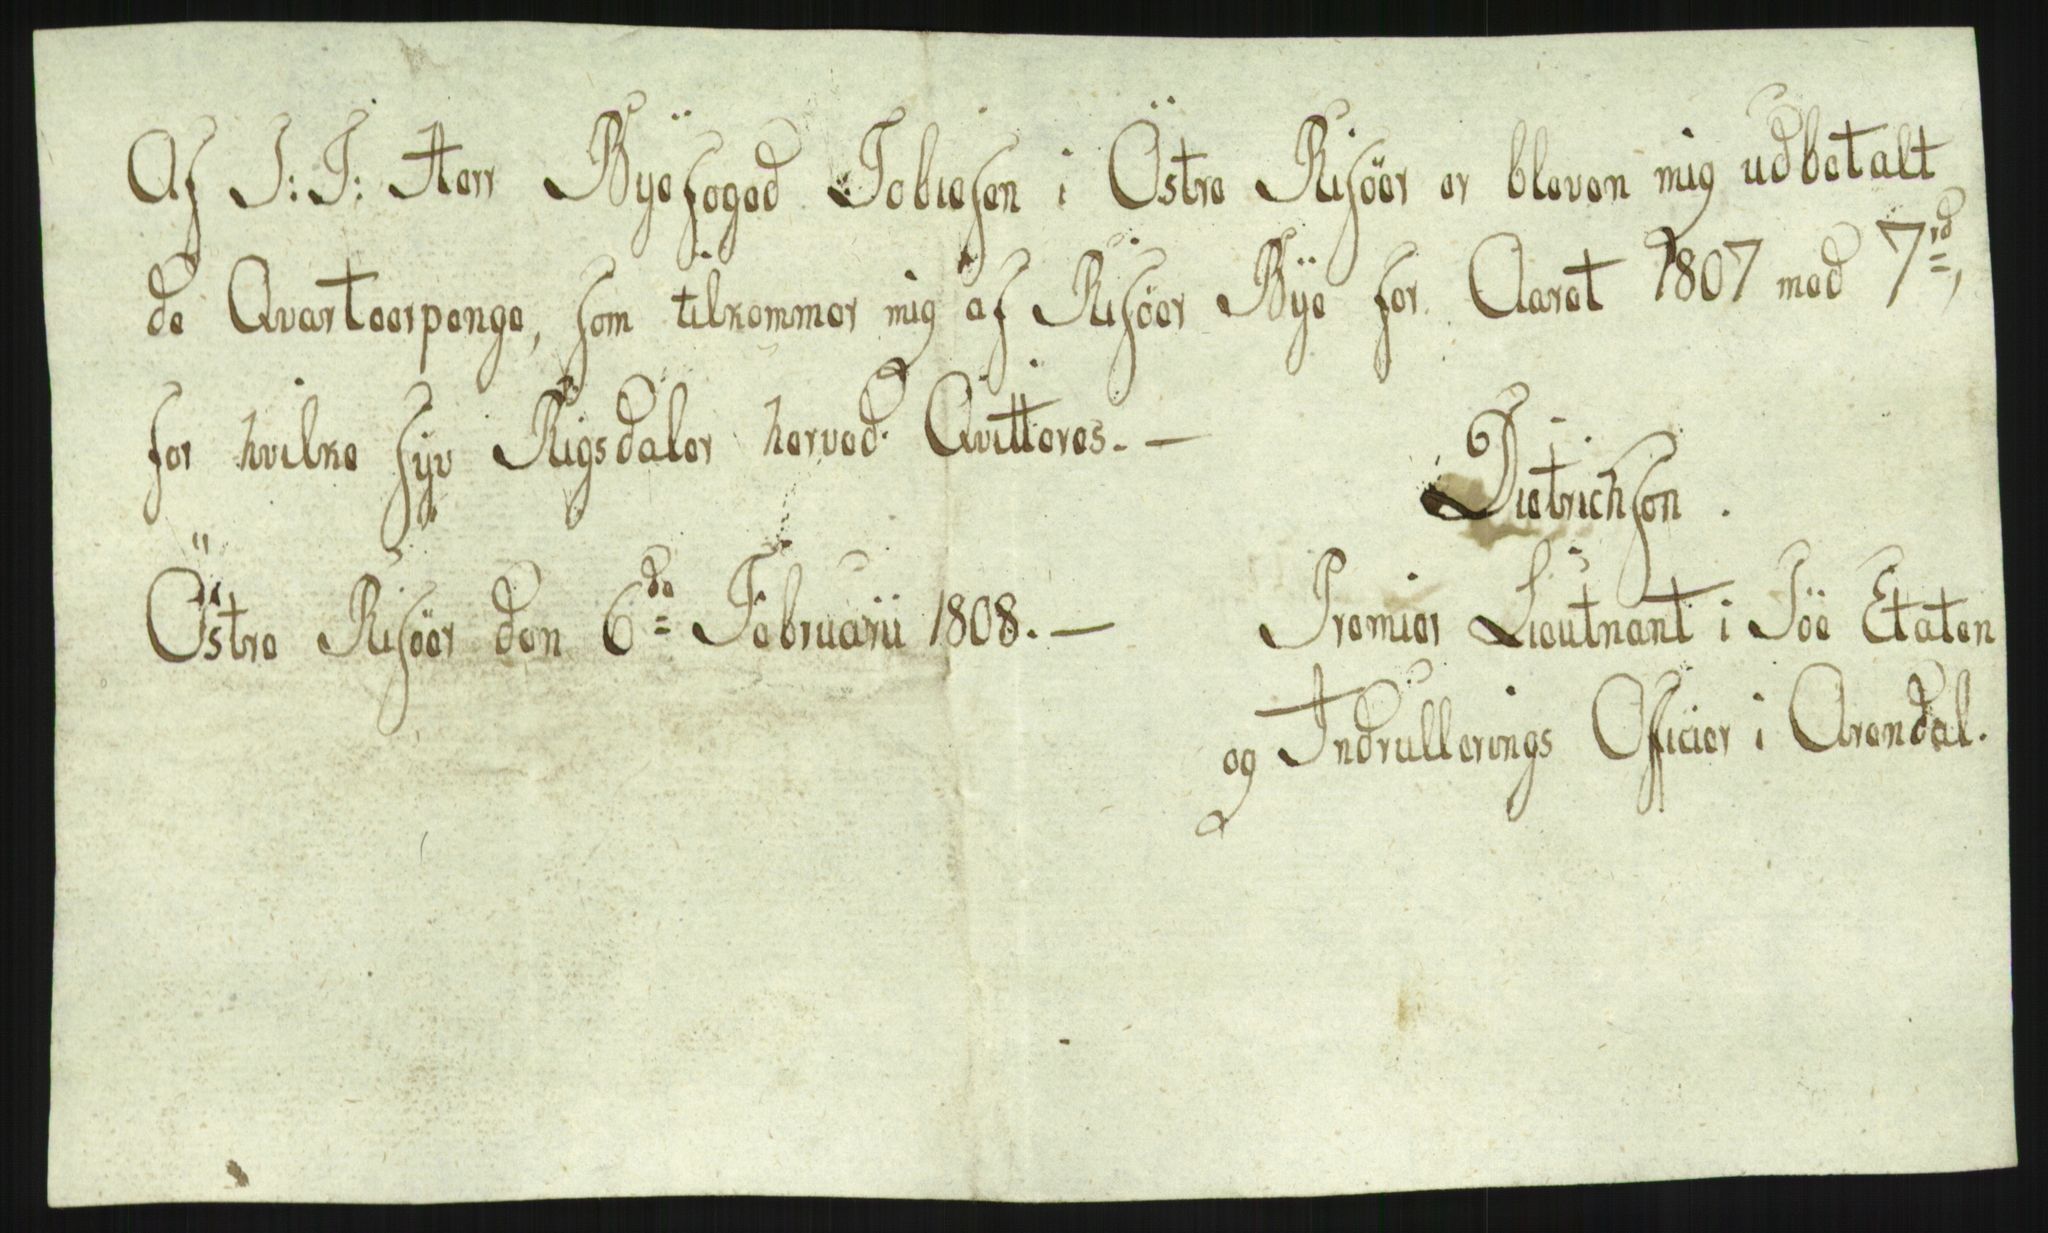 Af S: T: Herr Byefoged Tobiesen i Östre Risöer er bleven mig udbetalt
de Qvarteerpenge, som tilkommer mig af Risöer Bÿe for Aaret 1807 med 7 rd,
for hvilke syv Rigsdaler herved Qvitteres. —
Dietrichson.
Östre Risöer den 6de Februarii 1808. —
Premier Lieutnant i Söe Etaten
og Indrullerings Officier i Arendal.